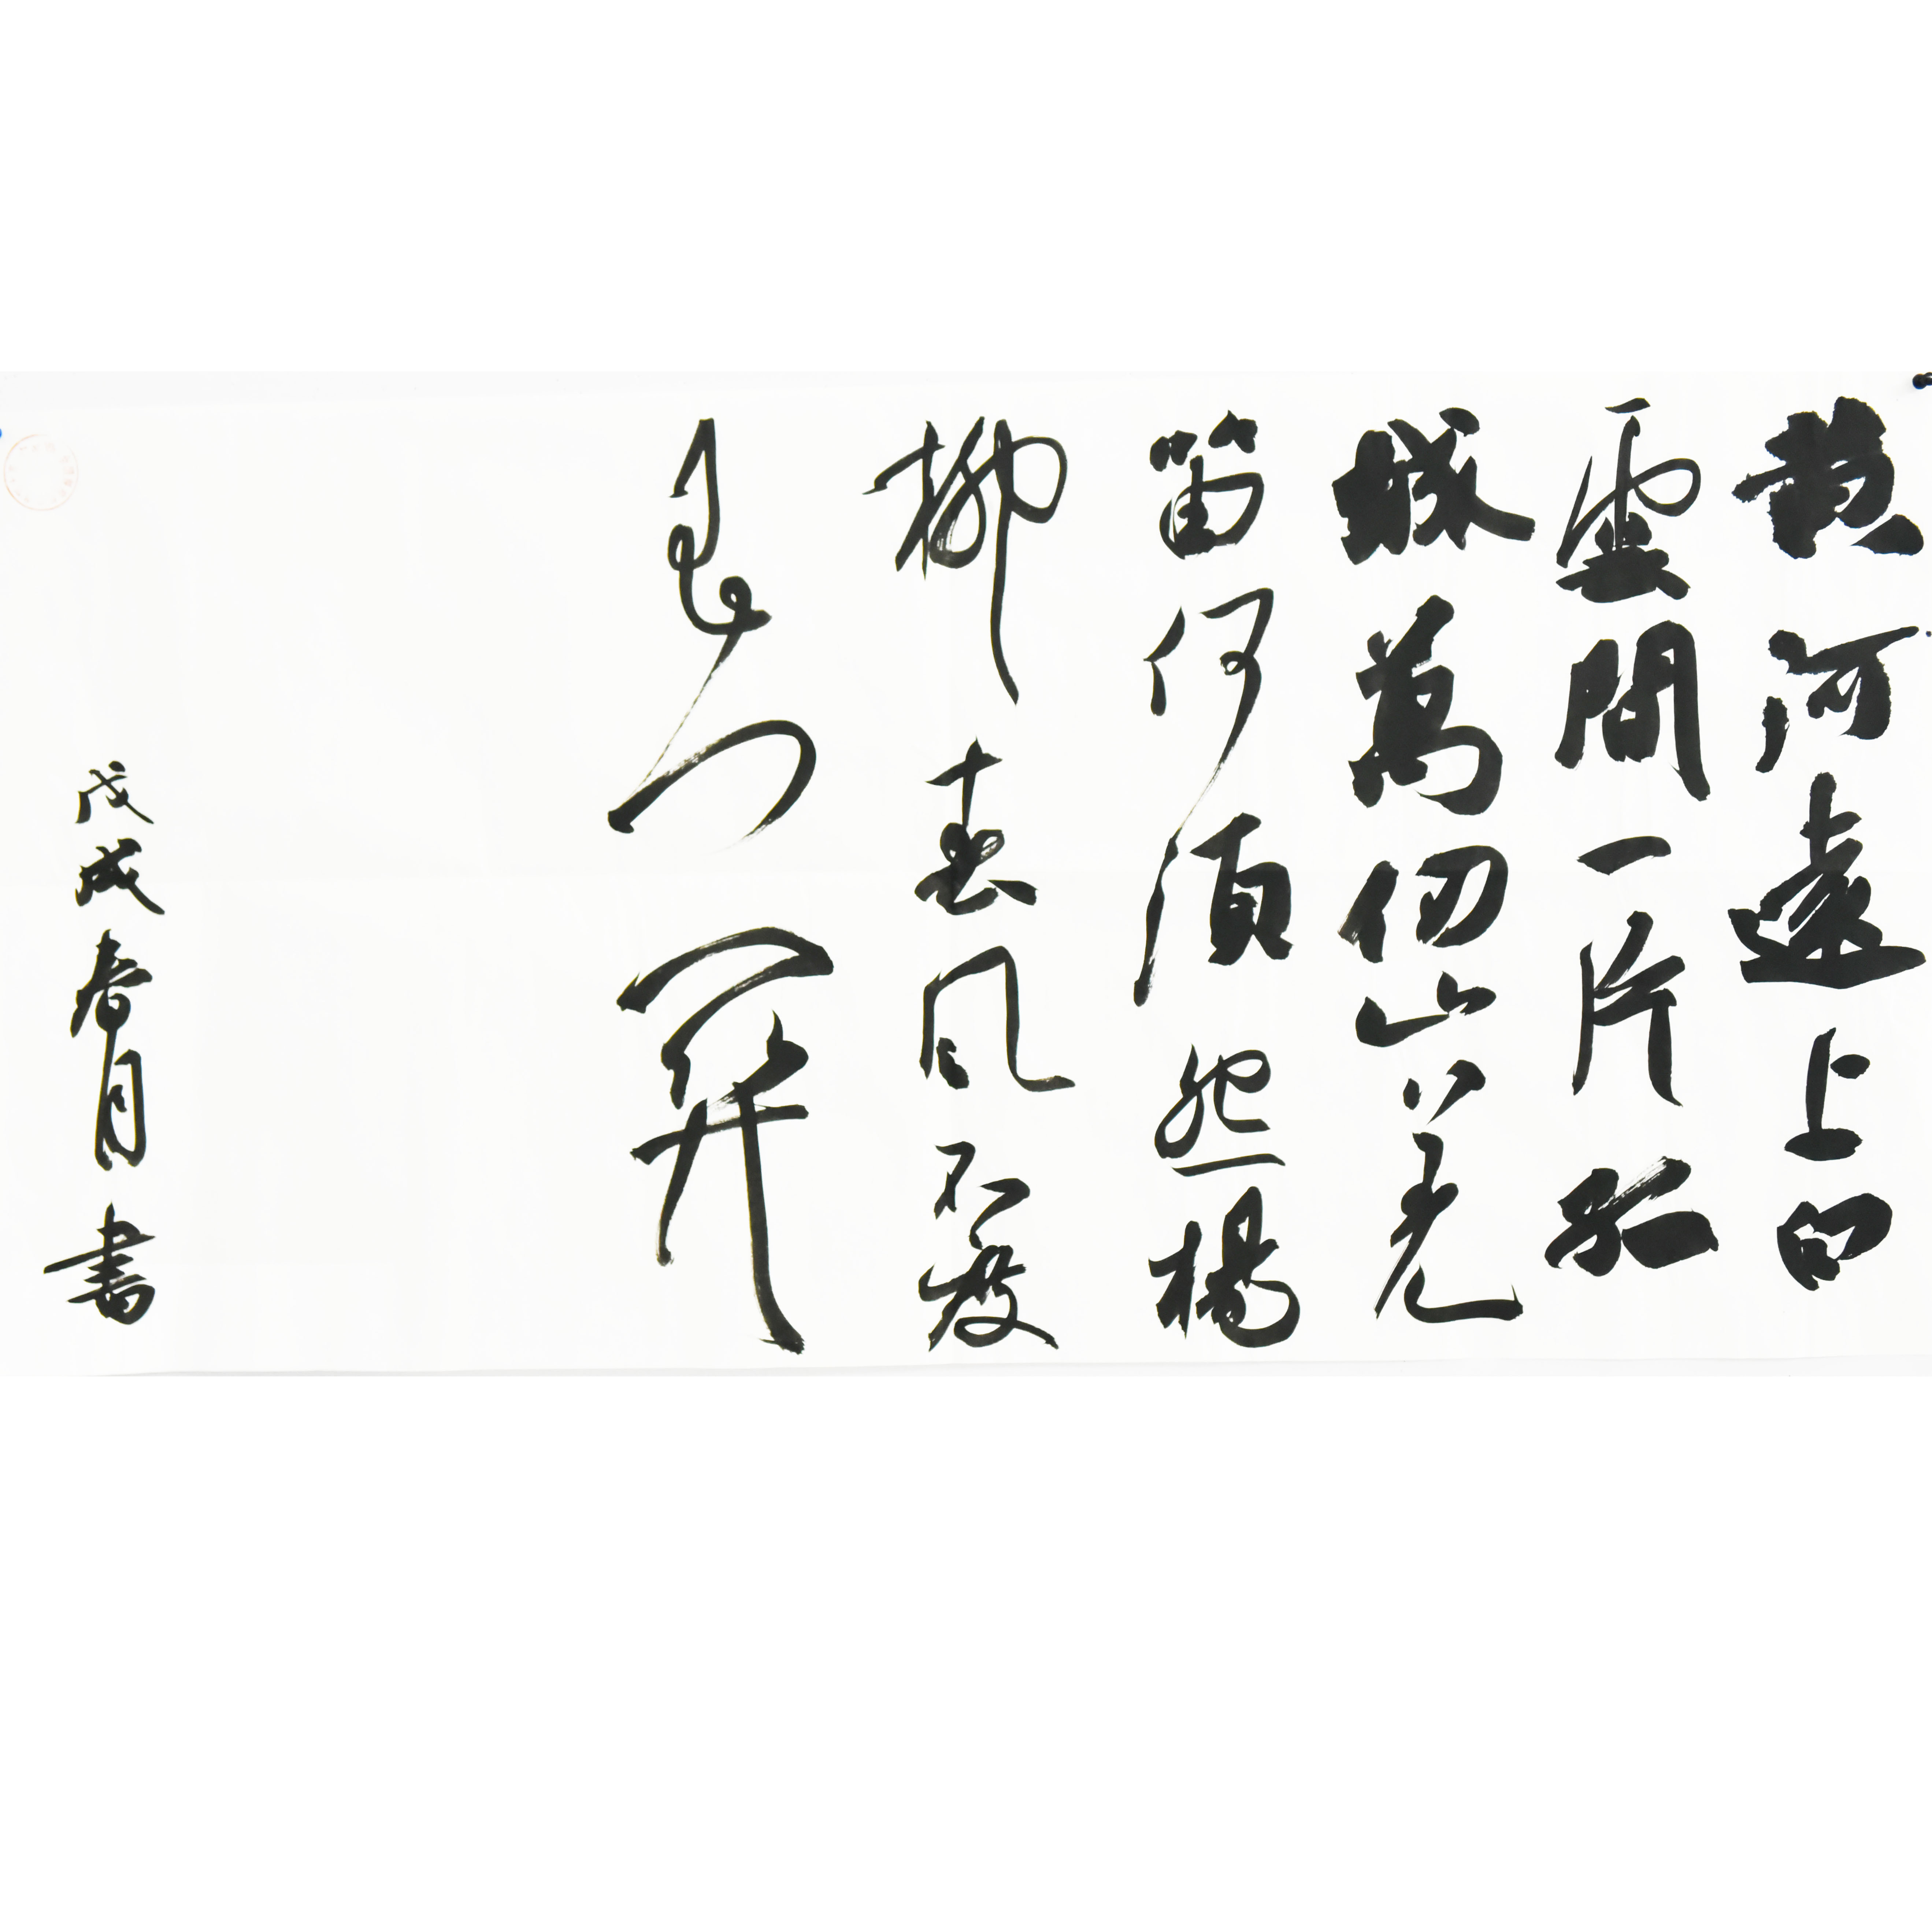 黃河遠上白
雲間一片孤
城萬仞山羌
笛何須怨楊
柳春風不度
玉門關
戊戌春月書